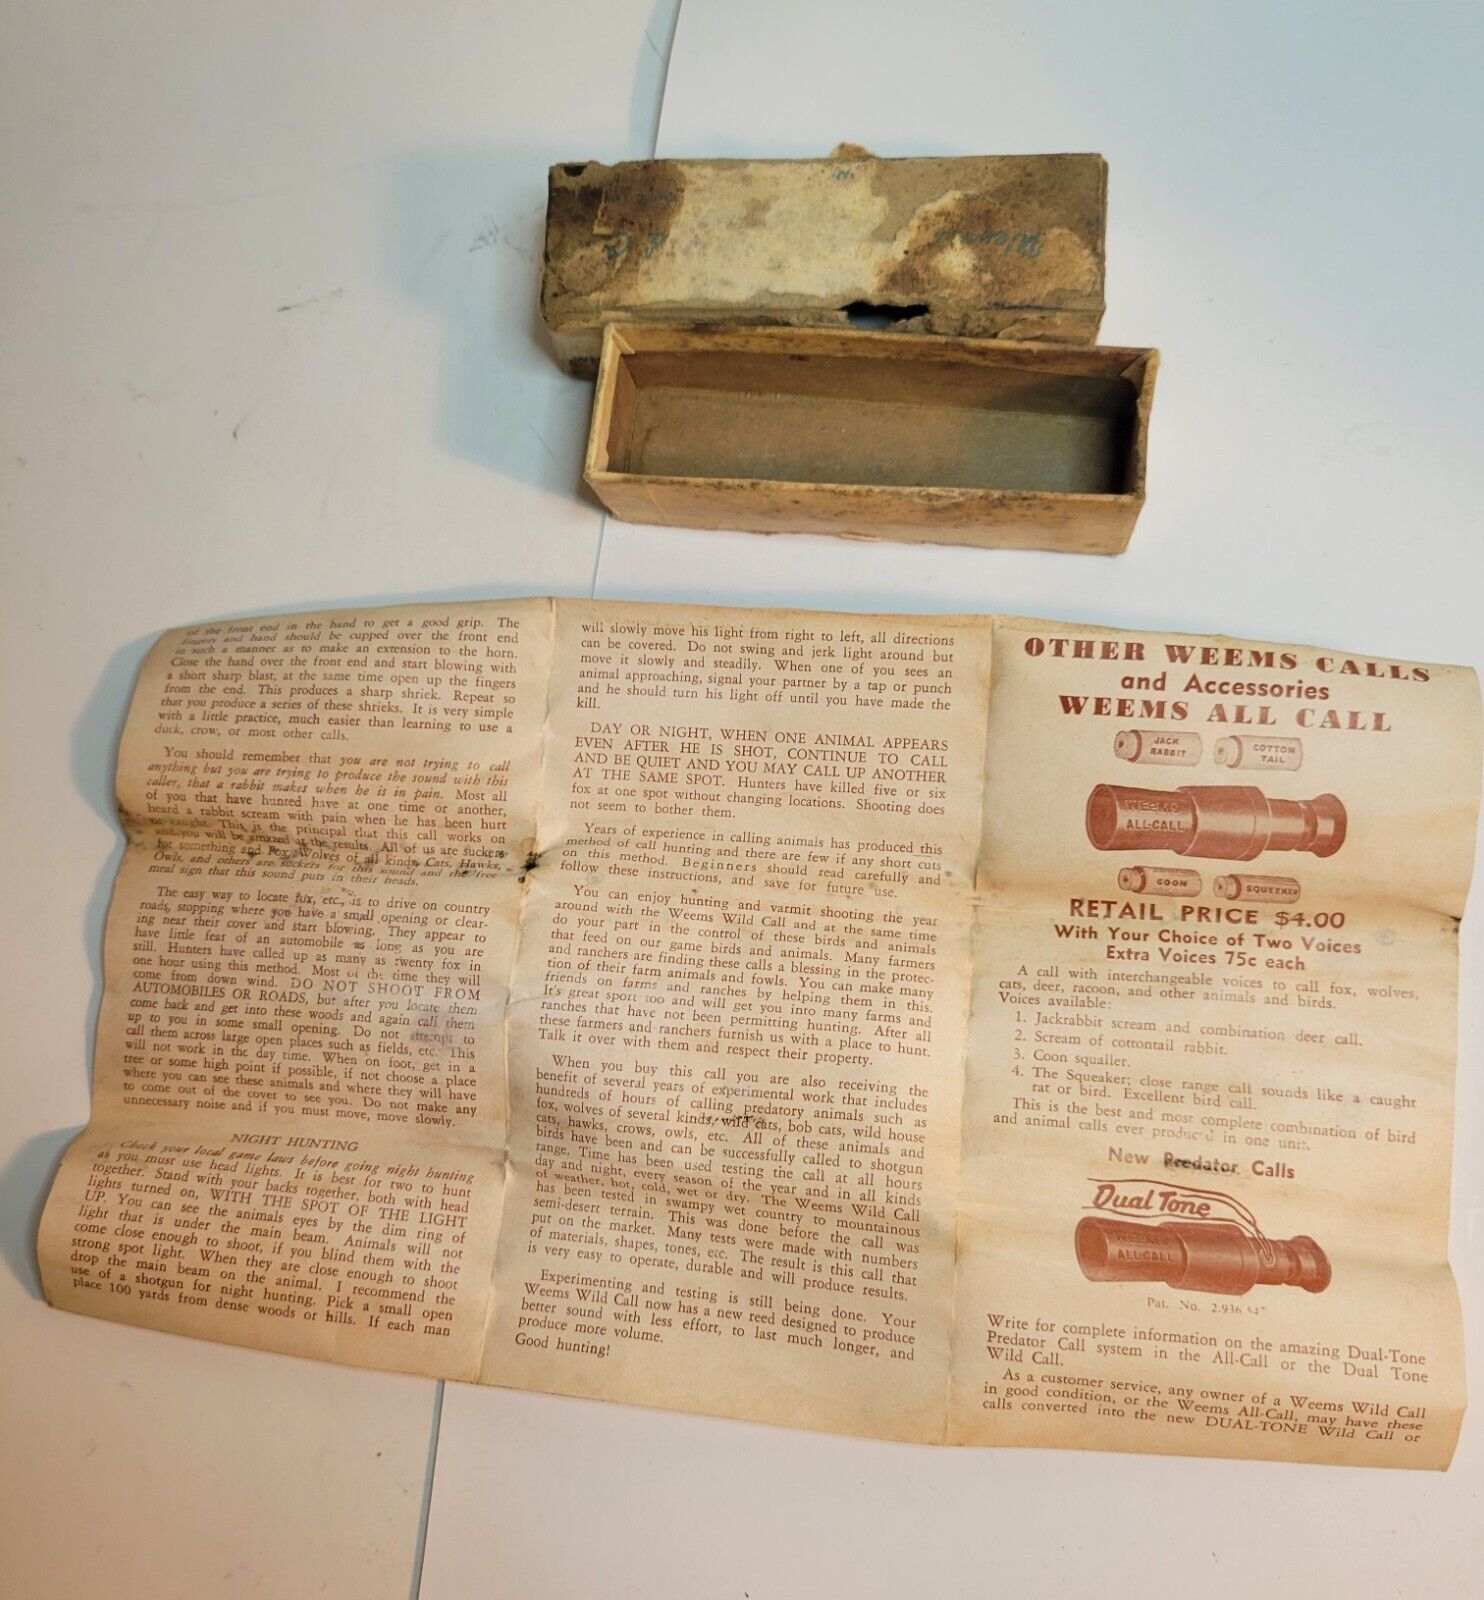 Weems
of the front end in the hand to get a good grip. The
fingers and hand should be cupped over the front end
in such a manner as to make an extension to the horn.
Close the hand over the front end and start blowing with
a short sharp blast, at the same time open up the fingers
from the end. This produces a sharp shriek. Repeat so
that you produce a series of these shrieks. It is very simple
with a little practice, much easier than learning to use a
duck, crow, or most other calls.
You should remember that you are not trying to call
anything but you are trying to produce the sound with this
caller, that a rabbit makes when he is in pain. Most all
of you that have hunted have at one time or another,
heard a rabbit scream with pain when he has been hurt
or caught. This is the principal that this call works on
and you will be amazed at the results. All of us are suckers
for something and Fox, Wolves of all kinds, Cats, Hawks,
Owls, and others are suckers for this sound and the free
meal sign that this sound puts in their heads.
The easy way to locate fox, etc., is to drive on country
roads, stopping where you have a small opening or clear-
ing near their cover and start blowing. They appear to
have little fear of an automobile as long as you are
still. Hunters have called up as many as twenty fox in
one hour using this method. Most of the time they will
come from down wind. DO NOT SHOOT FROM
AUTOMOBILES OR ROADS, but after you locate them
come back and get into these woods and again call them
up to you in some small opening. Do not attempt to
call them across large open places such as fields, etc. This
will not work in the day time. When on foot, get in a
tree or some high point if possible, if not choose a place
where you can see these animals and where they will have
to come out of the cover to see you. Do not make any
unnecessary noise and if you must move, move slowly.
NIGHT HUNTING
Check your local game laws before going night hunting
as you must use head lights. It is best for two to hunt
together. Stand with your backs together, both with head
lights turned on, WITH THE SPOT OF THE LIGHT
UP. You can see the animals eyes by the dim ring of
light that is under the main beam. Animals will not
come close enough to shoot, if you blind them with the
strong spot light. When they are close enough to shoot
drop the main beam on the animal. I recommend the
use of a shotgun for night hunting. Pick a small open
place 100 yards from dense woods or hills. If each man
will slowly move his light from right to left, all directions
can be covered. Do not swing and jerk light around but
move it slowly and steadily. When one of you sees an
animal approaching, signal your partner by a tap or punch
and he should turn his light off until you have made the
kill.
DAY OR NIGHT, WHEN ONE ANIMAL APPEARS
EVEN AFTER HE IS SHOT, CONTINUE TO CALL
AND BE QUIET AND YOU MAY CALL UP ANOTHER
AT THE SAME SPOT. Hunters have killed five or six
fox at one spot without changing locations. Shooting does
not seem to bother them.
Years of experience in calling animals has produced this
method of call hunting and there are few if any short cuts
on this method. Beginners should read carefully and
follow these instructions, and save for future use.
You can enjoy hunting and varmit shooting the year
around with the Weems Wild Call and at the same time
do your part in the control of these birds and animals
that feed on our game birds and animals. Many farmers
and ranchers are finding these calls a blessing in the protec-
tion of their farm animals and fowls. You can make many
friends on farms and ranches by helping them in this.
It's great sport too and will get you into many farms and
ranches that have not been permitting hunting. After all
these farmers and ranchers furnish us with a place to hunt.
Talk it over with them and respect their property.
When you buy this call you are also receiving the
benefit of several years of experimental work that includes
hundreds of hours of calling predatory animals such as
fox, wolves of several kinds, wild cats, bob cats, wild house
cats, hawks, crows, owls, etc. All of these animals and
birds have been and can be successfully called to shotgun
range. Time has been used testing the call at all hours
day and night, every season of the year and in all kinds
of weather, hot, cold, wet or dry. The Weems Wild Call
has been tested in swampy wet country to mountainous
semi-desert terrain. This was done before the call was
put on the market. Many tests were made with numbers
of materials, shapes, tones, etc. The result is this call that
is very easy to operate, durable and will produce results.
Experimenting and testing is still being done. Your
Weems Wild Call now has a new reed designed to produce
better sound with less effort, to last much longer, and
produce more volume.
Good hunting!
OTHER WEEMS CALLS
and Accessories
WEEMS ALL CALL
JACK
RABBIT
COTTON
TAIL
WEEMS
ALL-CALL
COON
SQUEEKER
RETAIL PRICE $4.00
With Your Choice of Two Voices
Extra Voices 75c each
A call with interchangeable voices to call fox, wolves,
cats, deer, racoon, and other animals and birds.
Voices available:
1. Jackrabbit scream and combination deer call.
2. Scream of cottontail rabbit.
3. Coon squaller.
4. The Squeaker; close range call sounds like a caught
rat or bird. Excellent bird call.
This is the best and most complete combination of bird
and animal calls ever produced in one unit.
New Predator Calls
Dual Tone
WEEMS
ALL-CALL
Pat. No. 2,936,547
Write for complete information on the amazing Dual-Tone
Predator Call system in the All-Call or the Dual Tone
Wild Call.
As a customer service, any owner of a Weems Wild Call
in good condition, or the Weems All-Call, may have these
calls converted into the new DUAL-TONE Wild Call or